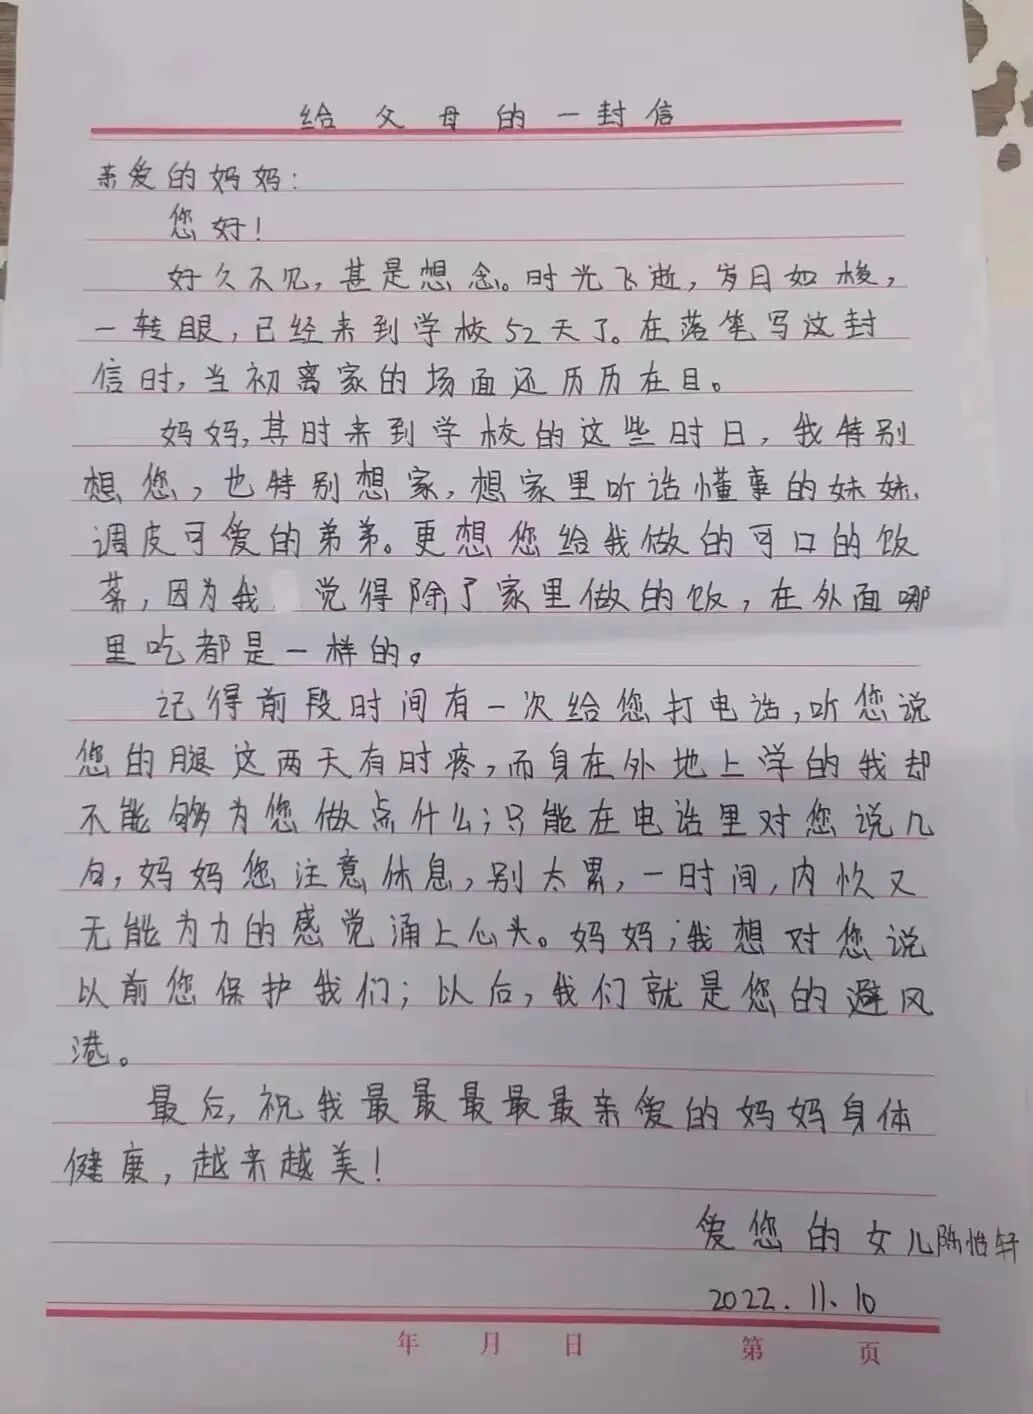 给父母的一封信
亲爱的妈妈：
您好！
好久不见，甚是想念。时光飞逝，岁月如梭，
一转眼，已经来到学校52天了。在落笔写这封
信时，当初离家的场面还历历在目。
妈妈，其时来到学校的这些时日，我特别
想您，也特别想家，想家里听话懂事的妹妹、
调皮可爱的弟弟。更想您给我做的可口的饭
菜，因为我觉得除了家里做的饭，在外面哪
里吃都是一样的。
记得前段时间有一次给您打电话，听您说
您的腿这两天有时疼，而身在外地上学的我却
不能够为您做点什么；只能在电话里对您说几
句，妈妈您注意休息，别太累，一时间，内疚又
无能为力的感觉涌上心头。妈妈；我想对您说
以前您保护我们；以后，我们就是您的避风
港。
最后，祝我最最最最最亲爱的妈妈身体
健康，越来越美！
爱您的女儿陈怡轩
2022.11.10
年 月 日 第 页